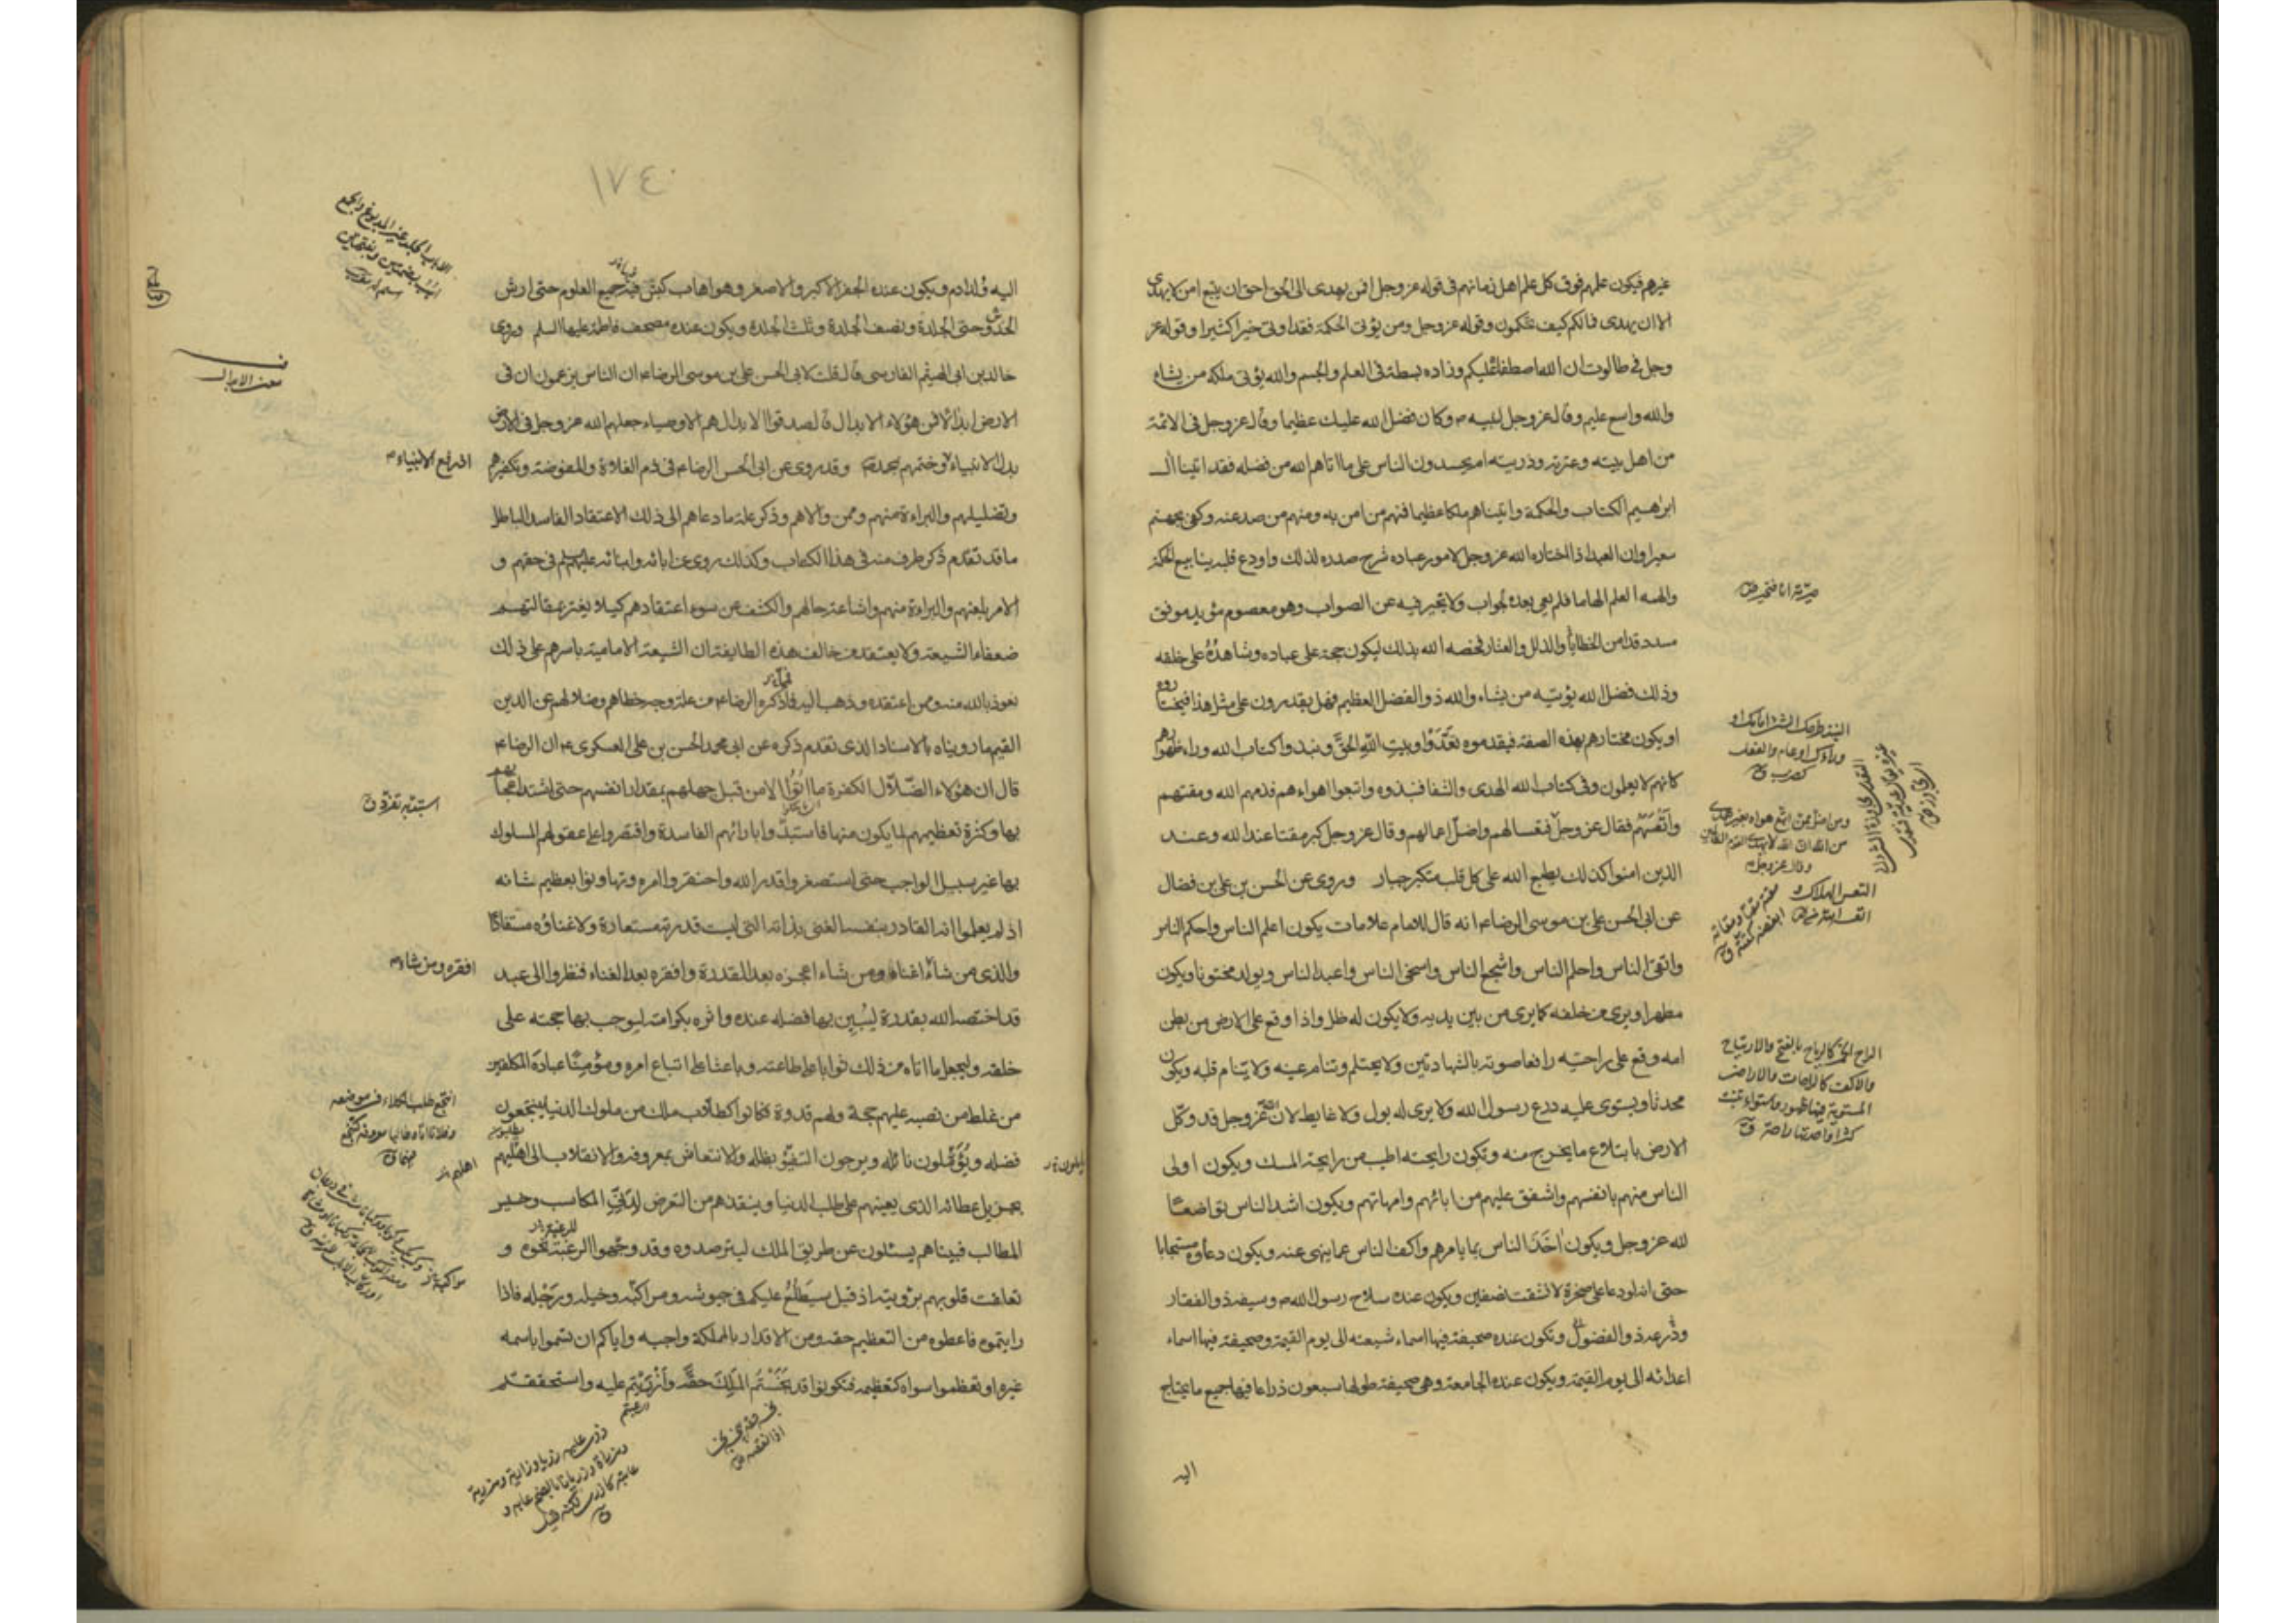 غيرهم فيكون علمهم فوق كل علم اهل زمانهم فى قوله عز وجل افمن يهدى الى الحق احق ان يتبع امن لا يهدى
الا ان يهدى فمالكم كيف تحكمون وقوله عز وجل ومن يؤتى الحكمة فقد اوتى خيرا كثيرا وقوله عز
وجل فى طالوت ان الله اصطفاه عليكم وزاده بسطة فى العلم والجسم والله يؤتى ملكه من يشاء
والله واسع عليم وقال عز وجل لنبيه ص وكان فضل الله عليك عظيما وقال عز وجل فى الائمة
من اهل بيته وعترته وذريته ام يحسدون الناس على ما اتاهم الله من فضله فقد اتينا ال
ابرهيم الكتاب والحكمة واتيناهم ملكا عظيما فمنهم من امن به ومنهم من صد عنه وكفى بجهنم
سعيرا وان العبد اذا اختاره الله عز وجل لامور عباده شرح صدره لذلك واودع قلبه ينابيع الحكمة
والهمه العلم الهاما فلم يعى بعده بجواب ولا يحير فيه عن الصواب وهو معصوم مؤيد موفق
مسدد قد امن الخطايا والزلل والعثار فخصه الله بذلك ليكون حجة على عباده وشاهده على خلقه
وذلك فضل الله يؤتيه من يشاء والله ذو الفضل العظيم فهل يقدرون على مثل هذا فيختاروه
او يكون مختارهم بهذه الصفة فيقدموه تعدوا وبيت الله الحق ونبذوا كتاب الله وراء ظهورهم
كانهم لا يعلمون وفى كتاب الله الهدى والشفا فنبذوه واتبعوا اهواءهم فذمهم الله ومقتهم
واتعسهم فقال عز وجل فتعسا لهم واضل اعمالهم وقال عز وجل كبر مقتا عند الله وعند
الذين امنوا كذلك يطبع الله على كل قلب متكبر جبار وروى عن الحسن بن على بن فضال
عن ابى الحسن على بن موسى الرضا ع انه قال للامام علامات يكون اعلم الناس واحكم الناس
واتقى الناس واحلم الناس واشجع الناس واسخى الناس واعبد الناس ويولد مختونا ويكون
مطهرا ويرى من خلفه كما يرى من بين يديه ولا يكون له ظل واذا وقع على الارض من بطن
امه وقع على راحتيه رافعا صوته بالشهادتين ولا يحتلم وتنام عينه ولا ينام قلبه ويكون
محدثا ويستوى عليه درع رسول الله ولا يرى له بول ولا غايط لان الله عز وجل قد وكل
الارض بابتلاع ما يخرج منه وتكون رايحته اطيب من رايحة المسك ويكون اولى
الناس منهم بانفسهم واشفق عليهم من ابائهم وامهاتهم ويكون اشد الناس تواضعا
لله عز وجل ويكون اخذ الناس بما يامرهم واكف الناس عما ينهى عنه ويكون دعاؤه مستجابا
حتى انه لو دعا على صخرة لانشقت نصفين ويكون عنده سلاح رسول الله ص وسيفه ذو الفقار
ودرعه ذو الفضول وتكون عنده صحيفة فيها اسماء شيعته الى يوم القيمة وصحيفة فيها اسماء
اعدائه الى يوم القيمة ويكون عنده الجامعة وهى صحيفة طولها سبعون ذراعا فيها جميع ما يحتاج
اليه
ومن اضل ممن اتبع هواه بغير هدى
من الله ان الله لا يهدى القوم الظالمين
وقال عز وجل
التعس الهلاك
الراح الخمر كالرياح بالفتح والارتياح
والاكف كالراحات والاراضى
المستوية فيها ظهور واستواء تنبت
كثيرا واحدتها راحة ق
١٧٤
اليه ولد ادم ويكون عنده الجفر الاكبر والاصغر وهو اهاب كبش فيه جميع العلوم حتى ارش
الخدش وحتى الجلدة ونصف الجلدة وثلث الجلدة ويكون عنده مصحف فاطمة عليها السلم وروى
خالد بن ابى الهيثم الفارسى قال قلت لابى الحسن على بن موسى الرضا ع ان الناس يزعمون ان فى
الارض ابدالا فمن هؤلاء الابدال قال صدقوا الابدال هم الاوصياء جعلهم الله عز وجل فى الارض
بدل الانبياء وختمهم بمحمد ص وقد روى عن ابى الحسن الرضا ع فى ذم الغلاة والمفوضة وتكفيرهم
وتضليلهم والبراءة منهم وممن والاهم وذكر علة ما دعاهم الى ذلك الاعتقاد الفاسد الباطل
ما قد تقدم ذكر طرف منه فى هذا الكتاب وكذلك روى عن ابائه وابنائه عليهم السلم فى حقهم و
الامر بلعنهم والبراءة منهم واشاعة حالهم والكشف عن سوء اعتقادهم كيلا يغتر بمقالتهم
ضعفاء الشيعة ولا يعتقد من خالف هذه الطايفة ان الشيعة الامامية باسرهم على ذلك
نعوذ بالله منه وممن اعتقده وذهب اليه فما ذكره الرضا ع من علة وجه خطاهم وضلالهم عن الدين
القيم ما رويناه بالاسناد الذى تقدم ذكره عن ابى محمد الحسن بن على العسكرى ع ان الرضا ع
قال ان هؤلاء الضلال الكفرة ما اتوا الا من قبل جهلهم بمقدار انفسهم حتى اشتد اعجابهم
بها وكثرة تعظيمهم لما يكون منها فاستبدوا بارائهم الفاسدة واقتصروا على عقولهم المسلوك
بها غير سبيل الواجب حتى استصغروا قدر الله واحتقروا امره وتهاونوا بعظيم شانه
اذ لم يعلموا انه القادر بنفسه الغنى بذاته التى ليست قدرته مستعارة ولا غناؤه مستفادا
والذى من شاء اغناه ومن شاء اعجزه بعد القدرة وافقره بعد الغناء فنظروا الى عبد
قد اختصه الله بقدرة ليبين بها فضله عنده واثره بكرامته ليوجب بها حجته على
خلقه وليجعل ما اتاه من ذلك ثوابا على طاعته وباعثا على اتباع امره ومؤمنا عباده المكلفين
من غلط من نصبه عليهم حجة ولهم قدوة فكانوا كطلاب ملك من ملوك الدنيا ينتجعون
فضله ويؤملون نائله ويرجون التفيؤ بظله والانتعاش بمعروفه والانقلاب الى اهليهم
بجزيل عطائه الذى يعينهم على طلب الدنيا وينقذهم من التعرض لدنى المكاسب وخسير
المطالب فبيناهم يسئلون عن طريق الملك ليترصدوه وقد وجهوا الرغبة نحوه و
تعلقت قلوبهم برؤيته اذ قيل سيطلع عليكم فى جيوشه ومراكبه وخيله ورجله فاذا
رايتموه فاعطوه من التعظيم حقه ومن الاقرار بالمملكة واجبه واياكم ان تسموا باسمه
غيره او تعظموا سواه كتعظيمه فتكونوا قد بخستم الملك حقه وازريتم عليه واستحققتم
افقره ومن شاء
استبد به تفرد ق